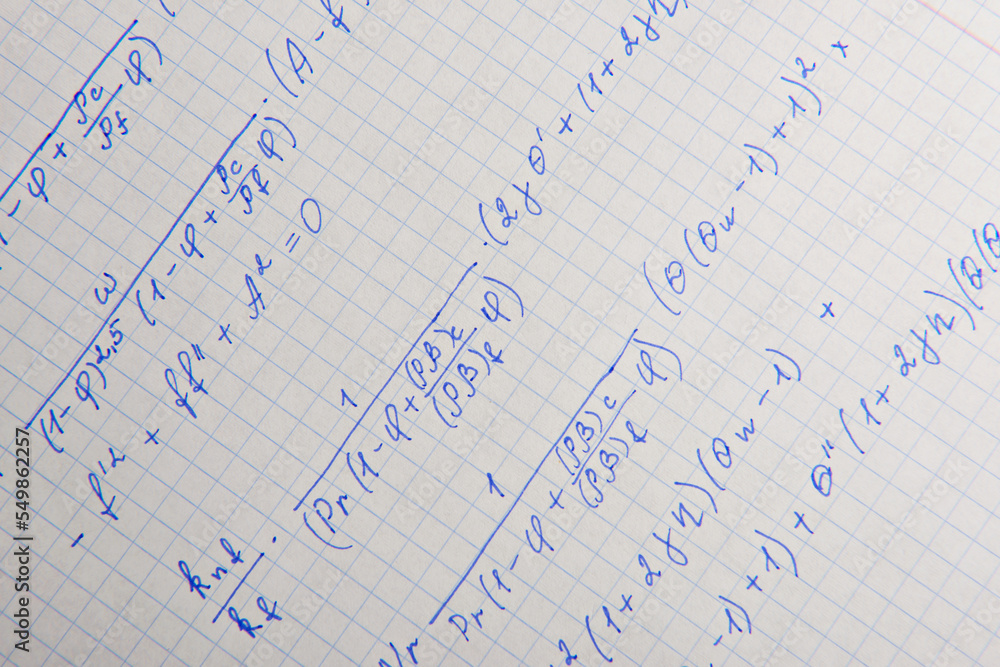 - φ + ρc/ρf φ)
ω/((1-φ)^2,5 (1-φ + ρc/ρf φ)) · (A - f
- f'^2 + ff'' + A^2 = 0
knf/kf · 1/(Pr(1-φ + (ρβ)c/(ρβ)f φ)) · (2γθ' + (1+2γη)
1/(Pr(1-φ + (ρβ)c/(ρβ)f φ)) (θ(θw - 1) + 1)^2 ×
2 (1+2γη)(θw - 1) ×
- 1) + 1) + θ''(1+2γη)(θ(θ
Adobe Stock | #549862257